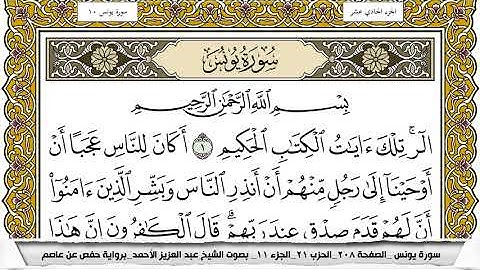 سورة يونس ١٠
الجزء الحادي عشر
سُورَةُ يُونُسَ
بِسْمِ اللَّهِ الرَّحْمَٰنِ الرَّحِيمِ
الٓر ۚ تِلْكَ ءَايَٰتُ الْكِتَٰبِ الْحَكِيمِ ١ أَكَانَ لِلنَّاسِ عَجَبًا أَنْ
أَوْحَيْنَآ إِلَىٰ رَجُلٍ مِّنْهُمْ أَنْ أَنذِرِ النَّاسَ وَبَشِّرِ الَّذِينَ ءَامَنُوٓا
أَنَّ لَهُمْ قَدَمَ صِدْقٍ عِندَ رَبِّهِمْ ۗ قَالَ الْكَٰفِرُونَ إِنَّ هَٰذَا
سورة يونس _الصفحة ٢٠٨_الحزب ٢١_الجزء ١١_ بصوت الشيخ عبد العزيز الأحمد_برواية حفص عن عاصم